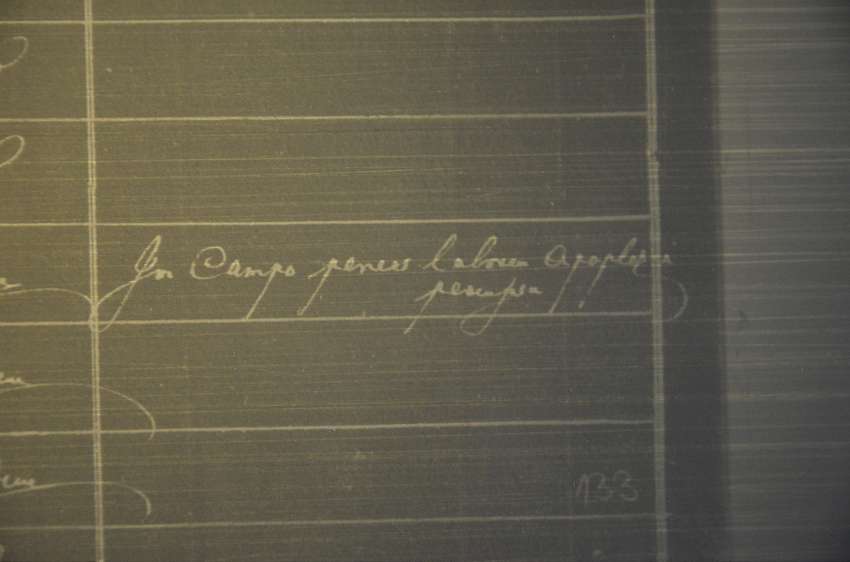 In Campo penes laborem Apoplexia
percussa
133